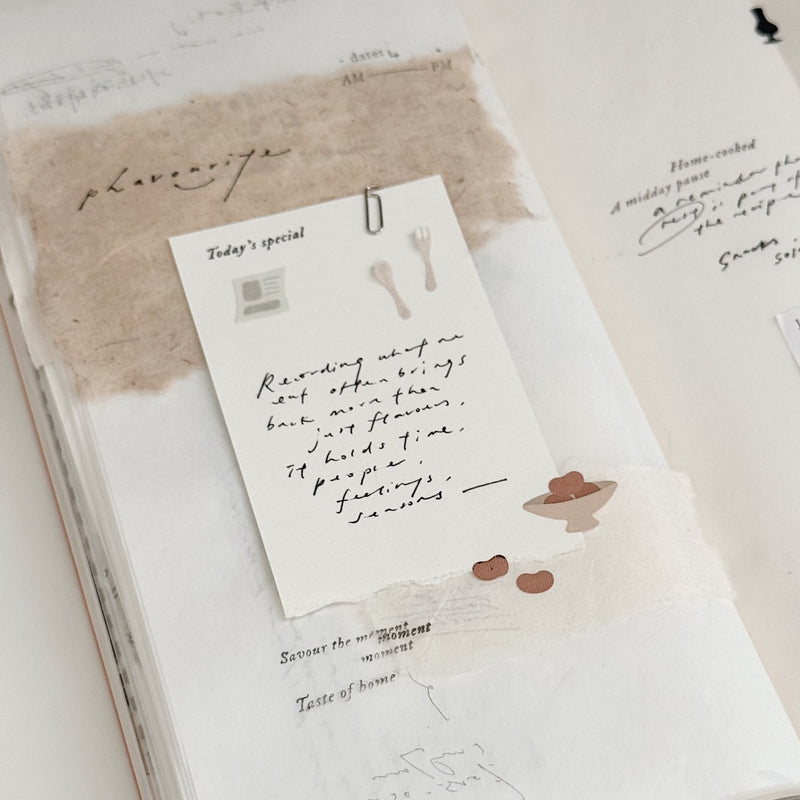 date:
AM PM
phavourite
Today's special
Recording what we
eat often brings
back more than
just flavours,
it holds time,
people,
feelings,
seasons —
Savour the moment
moment
moment
Taste of home
Home-cooked
A midday pause
a reminder
rest is part of
the recipe
Snacks